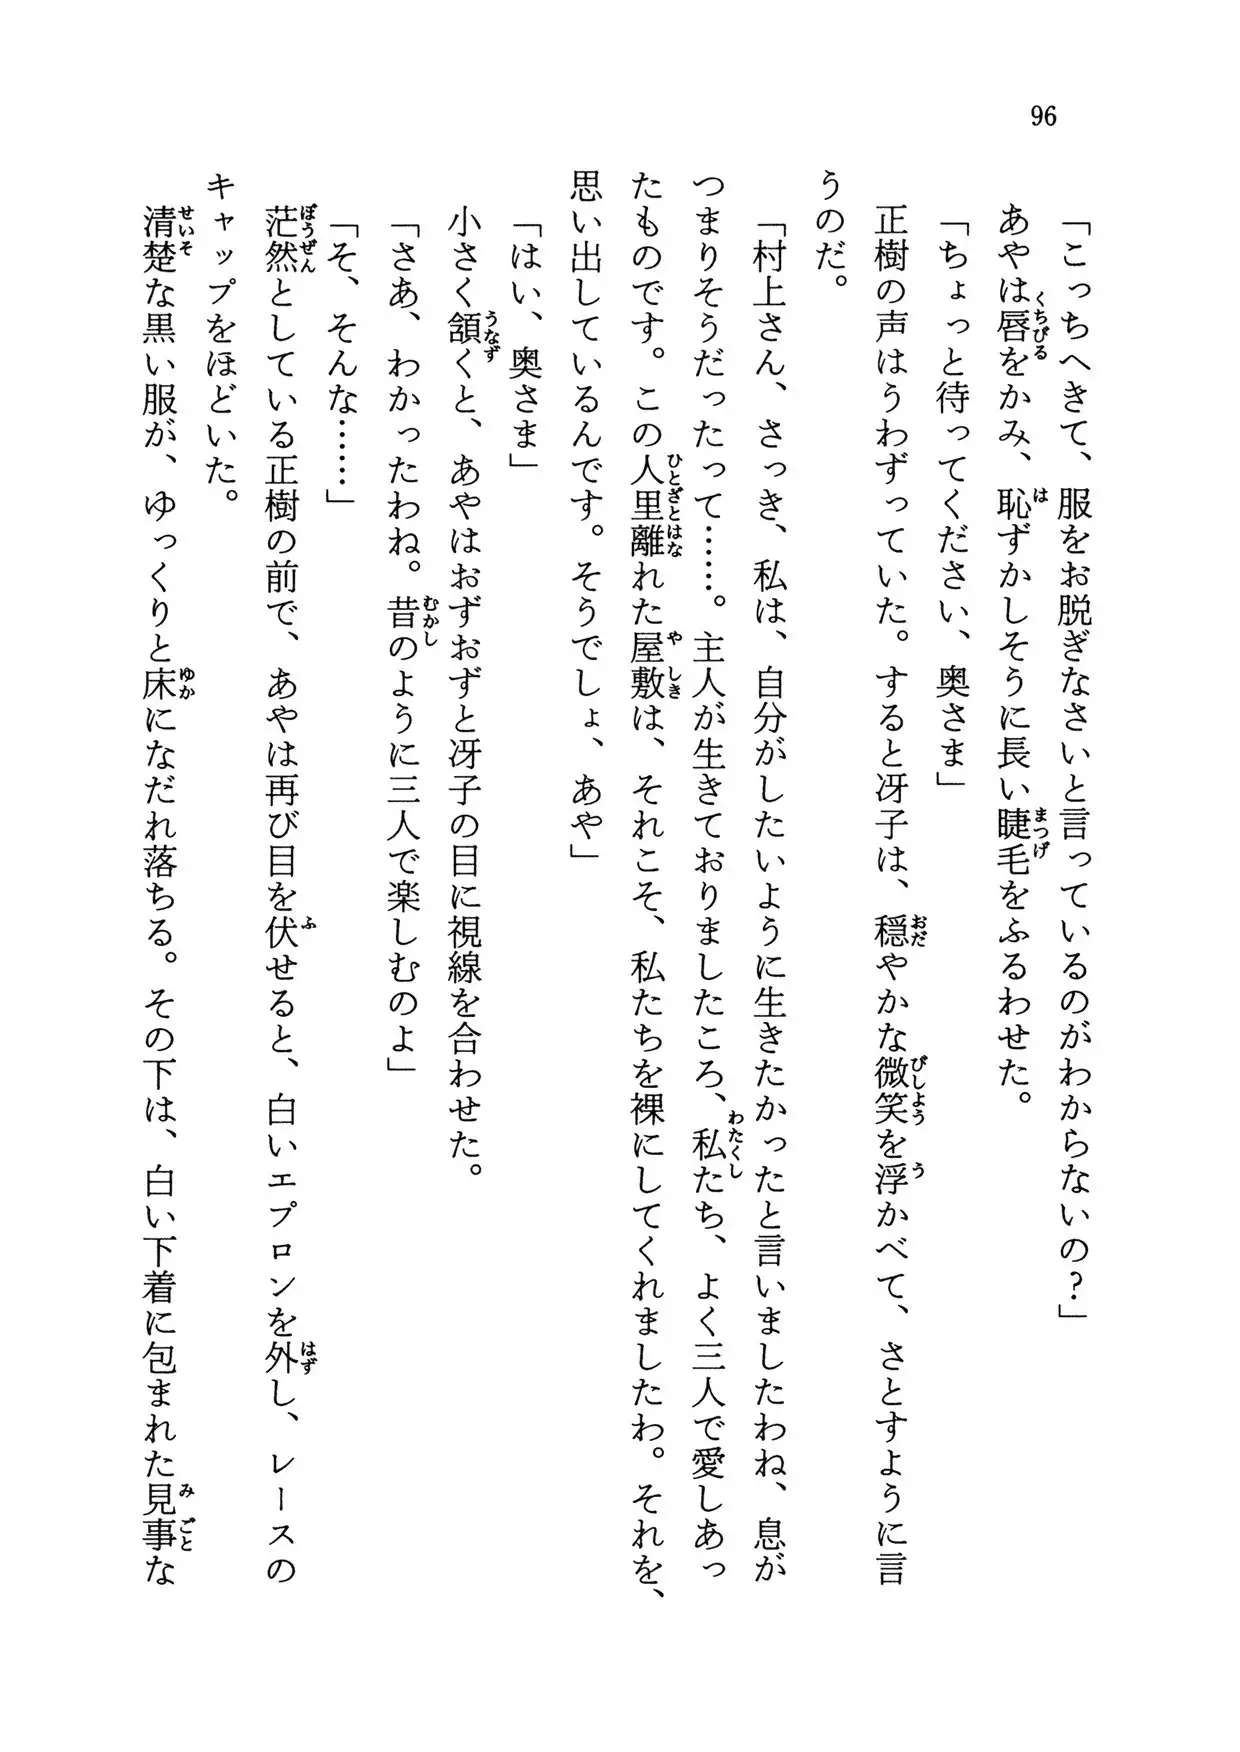 96
「こっちへきて、服をお脱ぎなさいと言っているのがわからないの？」
あやは唇をかみ、恥ずかしそうに長い睫毛をふるわせた。
「ちょっと待ってください、奥さま」
正樹の声はうわずっていた。すると冴子は、穏やかな微笑を浮かべて、さとすように言
うのだ。
「村上さん、さっき、私は、自分がしたいように生きたかったと言いましたわね、息が
つまりそうだったって……。主人が生きておりましたころ、私たち、よく三人で愛しあっ
たものです。この人里離れた屋敷は、それこそ、私たちを裸にしてくれましたわ。それを、
思い出しているんです。そうでしょ、あや」
「はい、奥さま」
小さく頷くと、あやはおずおずと冴子の目に視線を合わせた。
「さあ、わかったわね。昔のように三人で楽しむのよ」
「そ、そんな……」
茫然としている正樹の前で、あやは再び目を伏せると、白いエプロンを外し、レースの
キャップをほどいた。
清楚な黒い服が、ゆっくりと床になだれ落ちる。その下は、白い下着に包まれた見事な